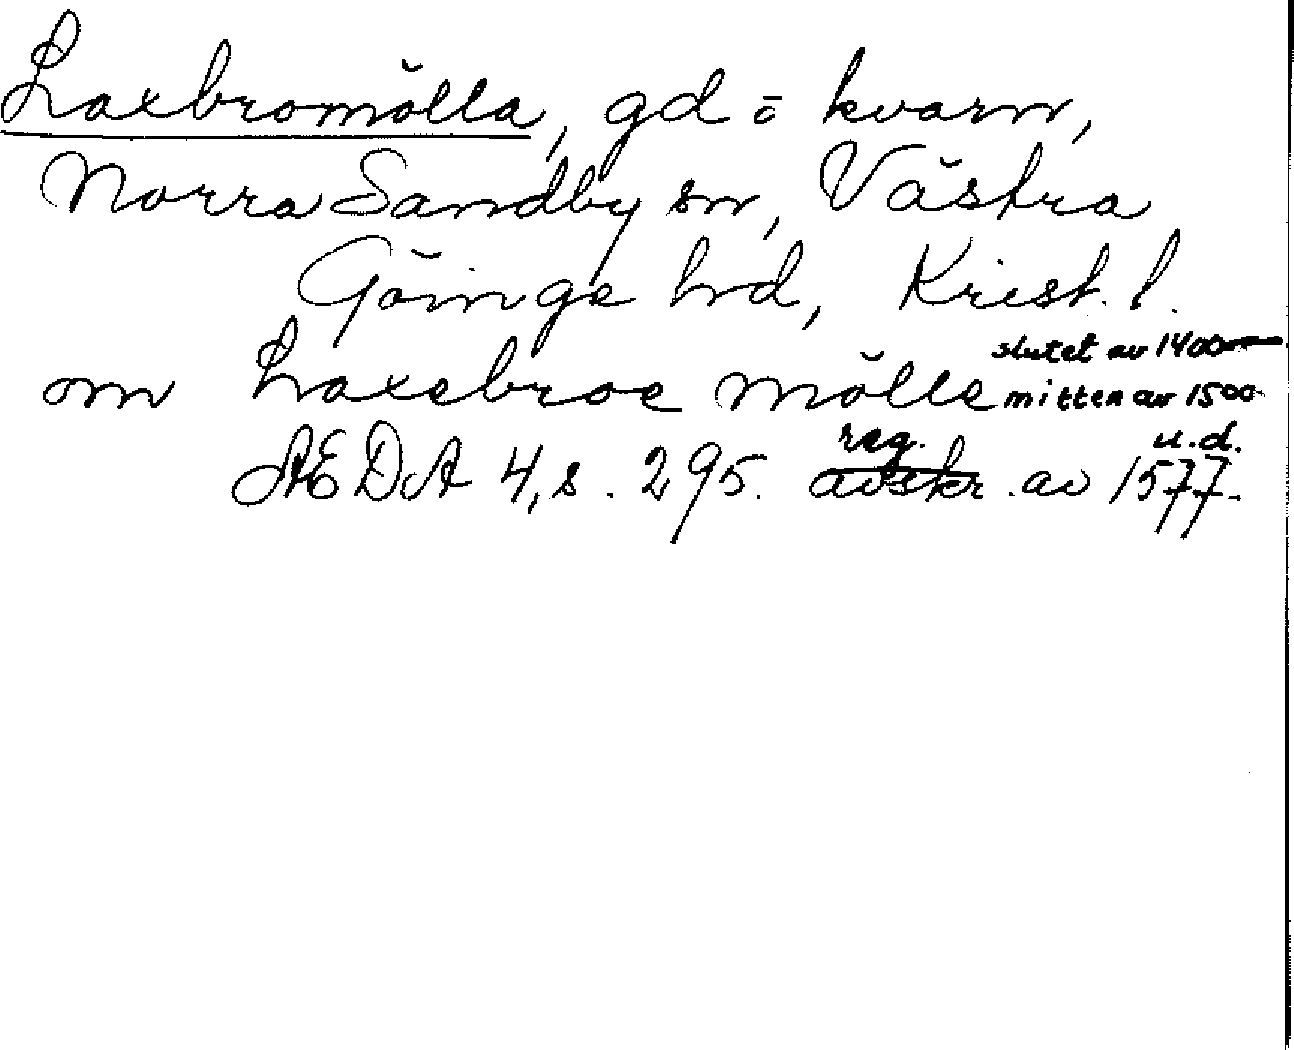 Laxbromölla, gd o kvarn,
Norra Sandby sn, Västra
Göinge hd, Krist. l.
slutet av 1400-
om Laxebroe mölle mitten av 1500-
reg. u.d.
ÆDA 4, s. 295. avskr. av 1577.